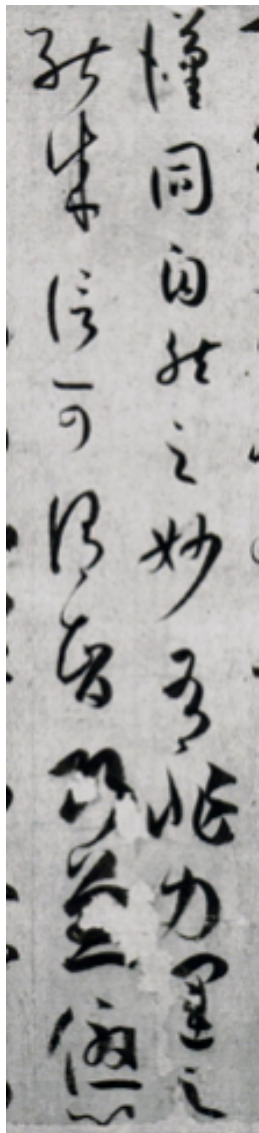 漢同自然之妙有非力運之
能成信可謂智巧兼優